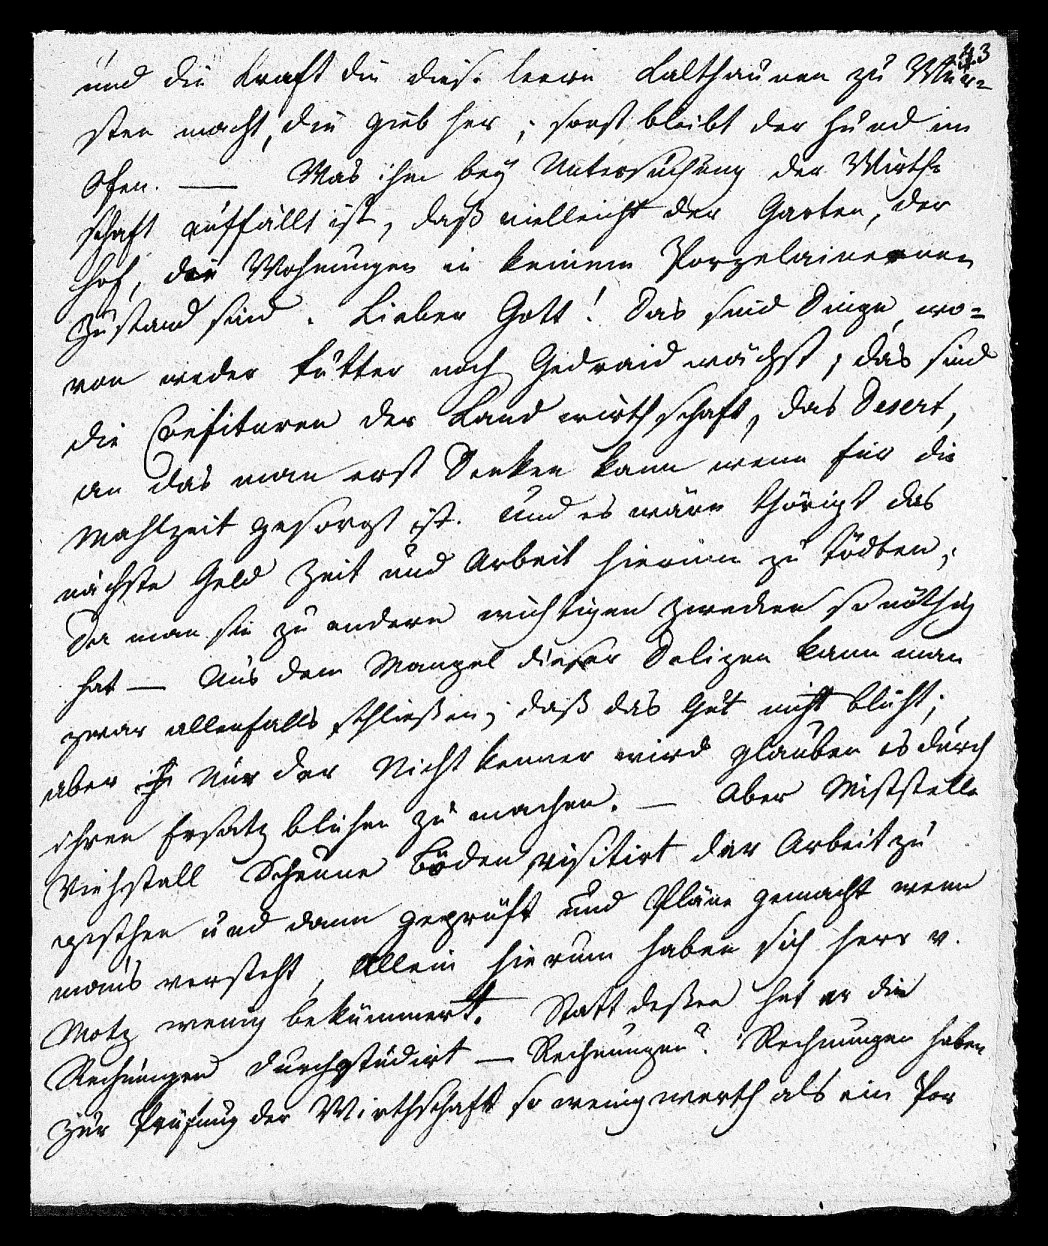 43
und die Kraft die diese leeren Kalthaunen zu Wür-
sten macht, die gieb her; sonst bleibt der Hund im
Ofen. — Was ihm bey Untersuchung der Wirth-
schaft auffällt ist, daß vielleicht der Garten, der
Hof, die Wohnungen in keinem Porzelainernen
Zustand sind. Lieber Gott! Das sind Dinge, wo-
von weder Futter noch Gedraid wächst; das sind
die Confituren der Landwirthschaft, das Desert,
an das man erst Denken kann wenn für die
Mahlzeit gesorgt ist. Und es wäre thörigt das
nächste Geld Zeit und Arbeit hierinn zu tödten,
Da man sie zu andern wichtigen Zwecken so nöthig
hat — Aus dem Mangel dieser Delizen kann man
zwar allenfalls schließen, daß das Gut nicht blüht;
aber nur der Nichtkenner wird glauben es durch
ihren Ersatz blühen zu machen. — Aber Miststelle
Viehstall Scheune Böden visitirt der Arbeit zu
gesehen und dann geprüft und Pläne gemacht wenn
mans versteht, Allein hierum haben sich Herr v.
Motz wenig bekümmert. Statt deßen hat er die
Rechnungen durchstudirt — Rechnungen? Rechnungen haben
zur Prüfung der Wirthschaft so wenig werth als ein Por